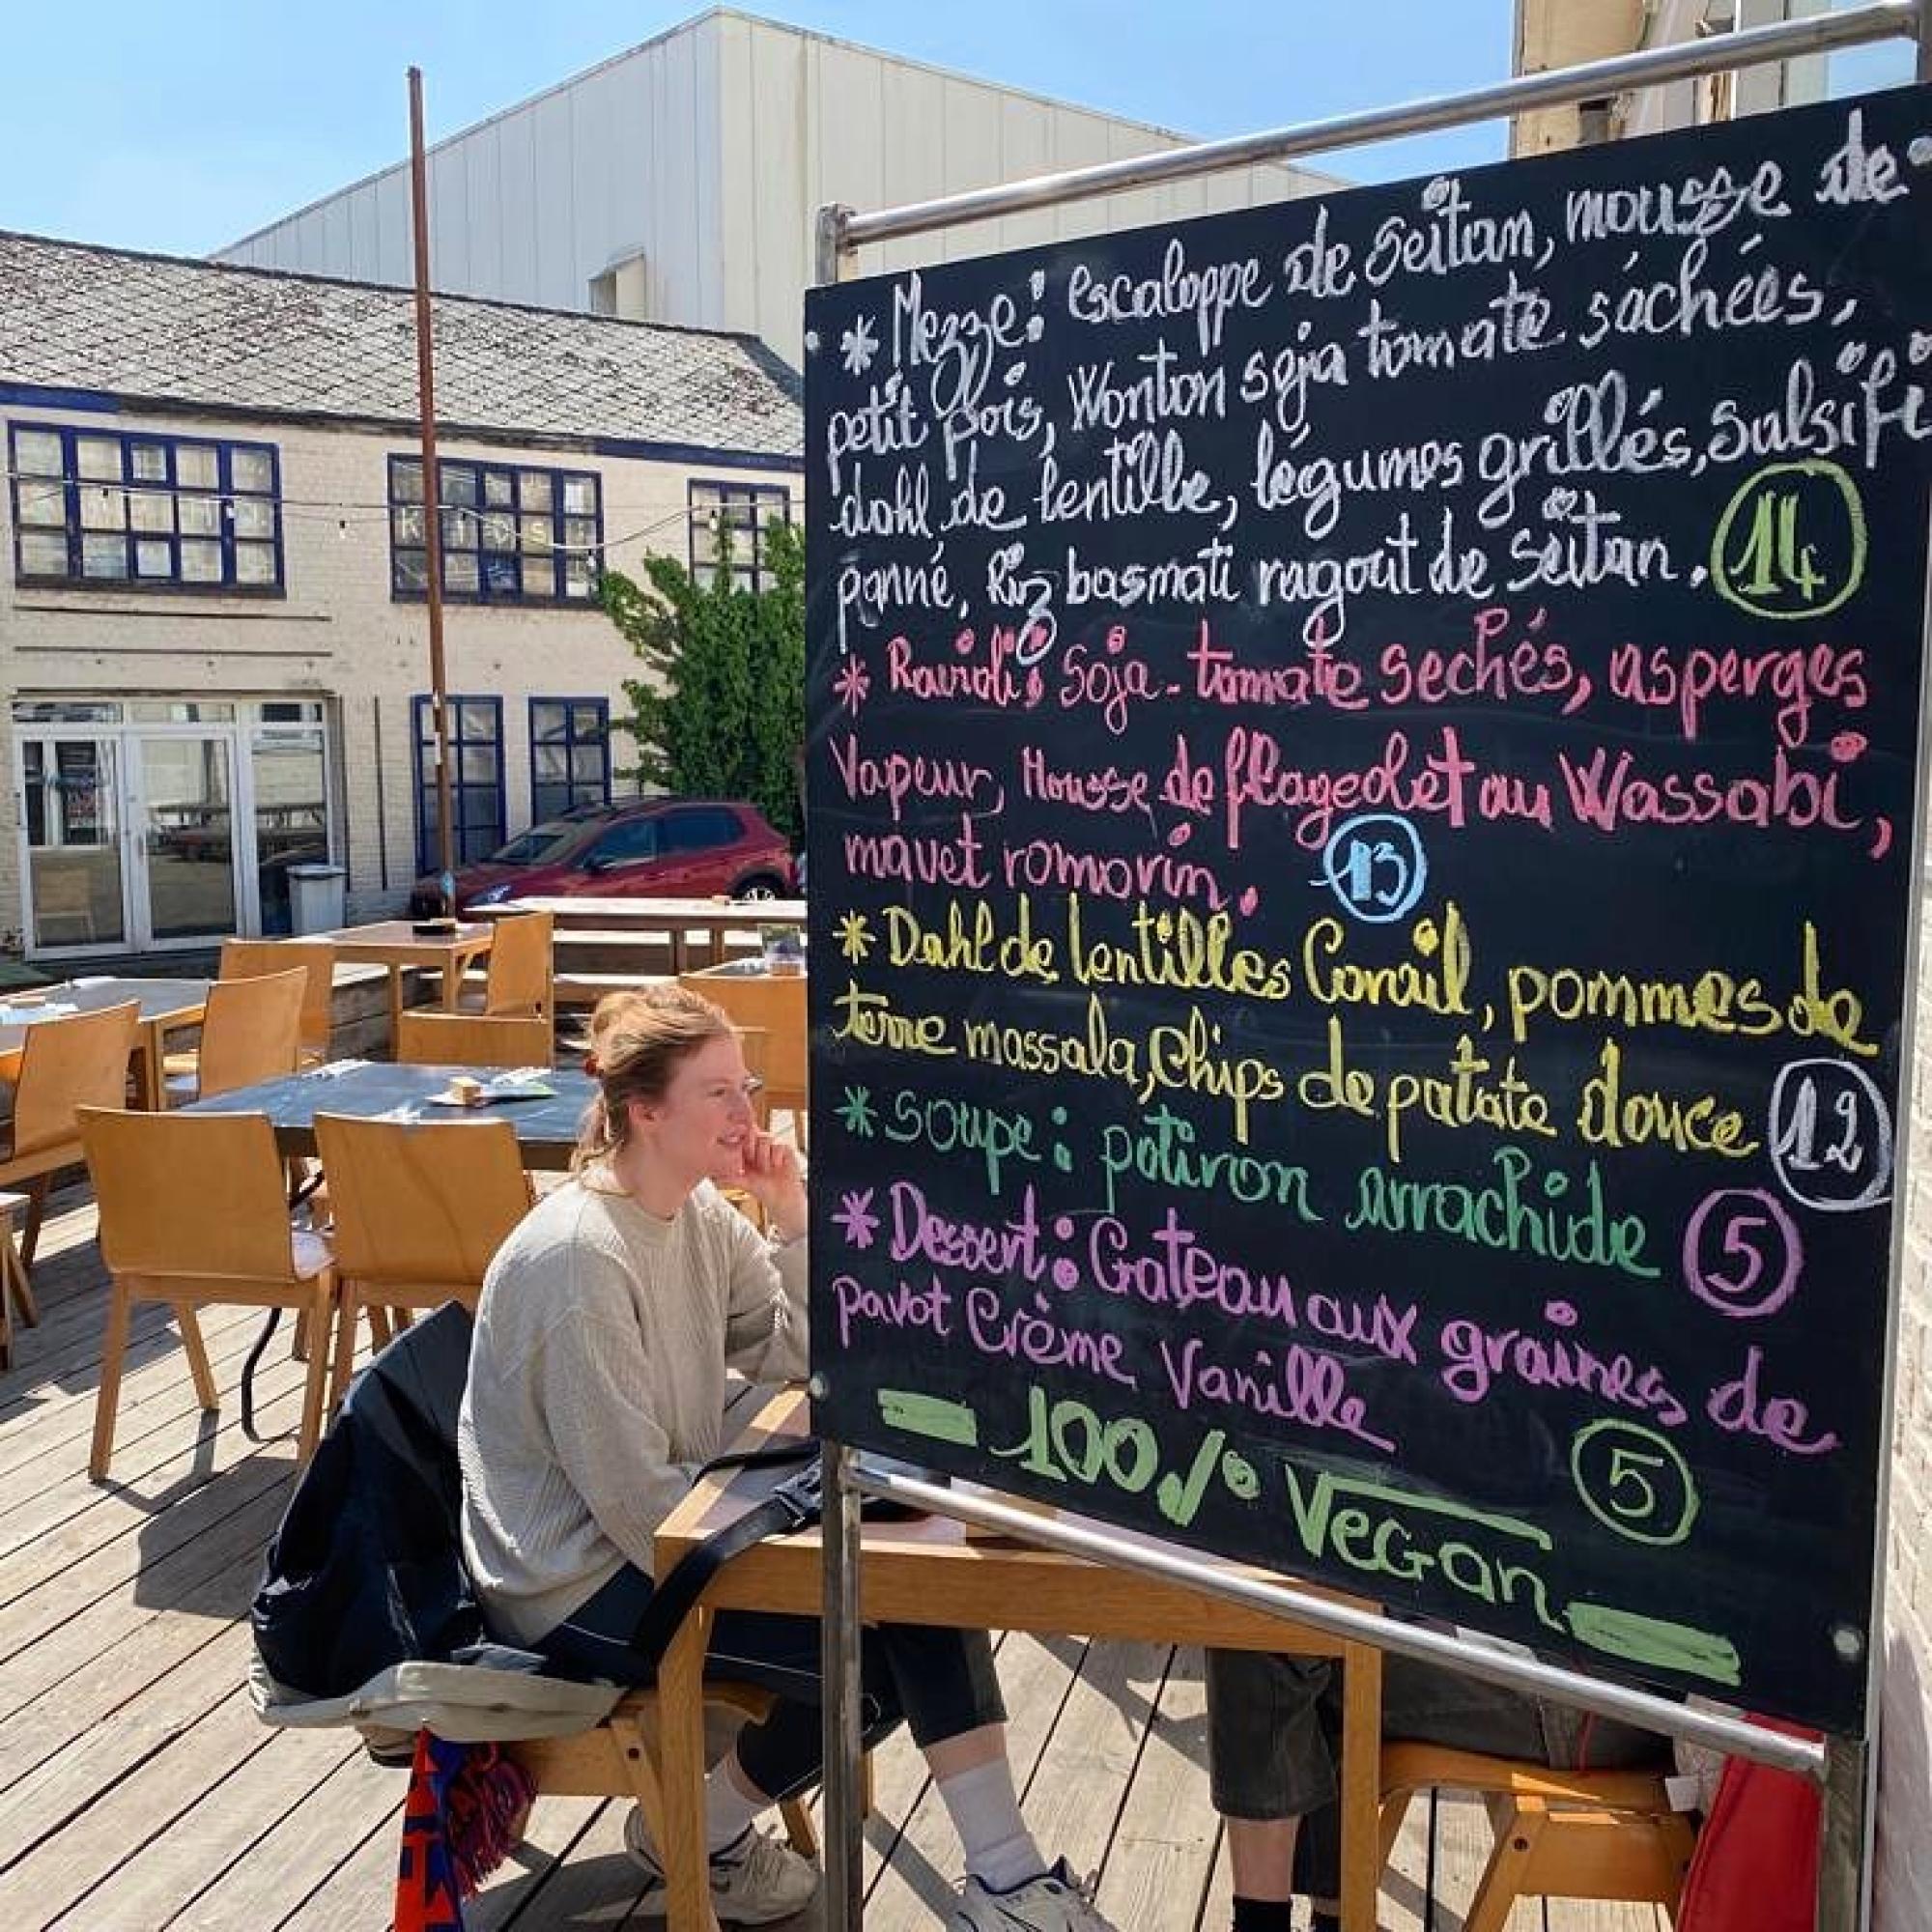 * Mezze: escaloppe de Seitan, mousse de
petit pois, Wonton soja tomate séchées,
dahl de lentille, légumes grillés, salsifi
panné, Riz basmati ragout de Seitan. 14€
* Ravioli: Soja-tomate sechés, asperges
Vapeur, Mousse de flageolet au Wassabi,
navet romorin. 13
* Dahl de lentilles Corail, pommes de
terre massala, Chips de patate douce 12
* Soupe: potiron arrachide 5
* Dessert: Gateau aux graines de
pavot Crème Vanille 5
100% Vegan
KIDS